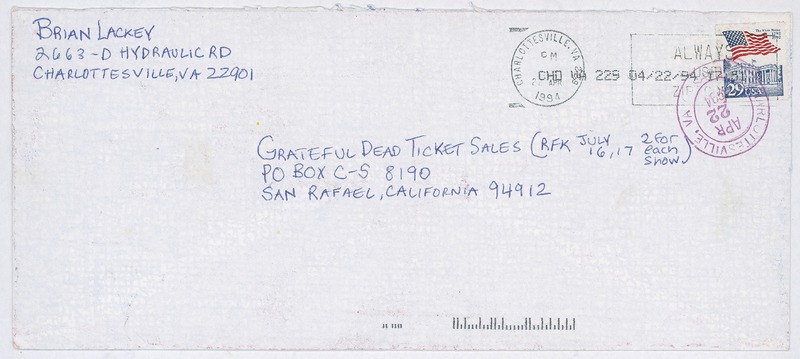 BRIAN LACKEY
2663-D HYDRAULIC RD
CHARLOTTESVILLE, VA 22901
CHARLOTTESVILLE, VA
APR
1994
CHO VA 229 04/22/94
ALWAYS
29 USA
APR
22
CHARLOTTESVILLE, VA
GRATEFUL DEAD TICKET SALES (RFK JULY 16,17 2 For each show)
PO BOX C-S 8190
SAN RAFAEL, CALIFORNIA 94912